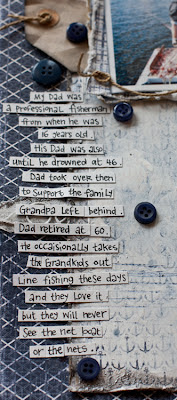 My Dad was
a professional fisherman
from when he was
16 years old.
His Dad was also
until he drowned at 46.
Dad took over then
to support the family
Grandpa left behind.
Dad retired at 60.
He occaisionally takes
the Grandkids out
Line fishing these days
and they love it
but they will never
see the net boat
or the nets.